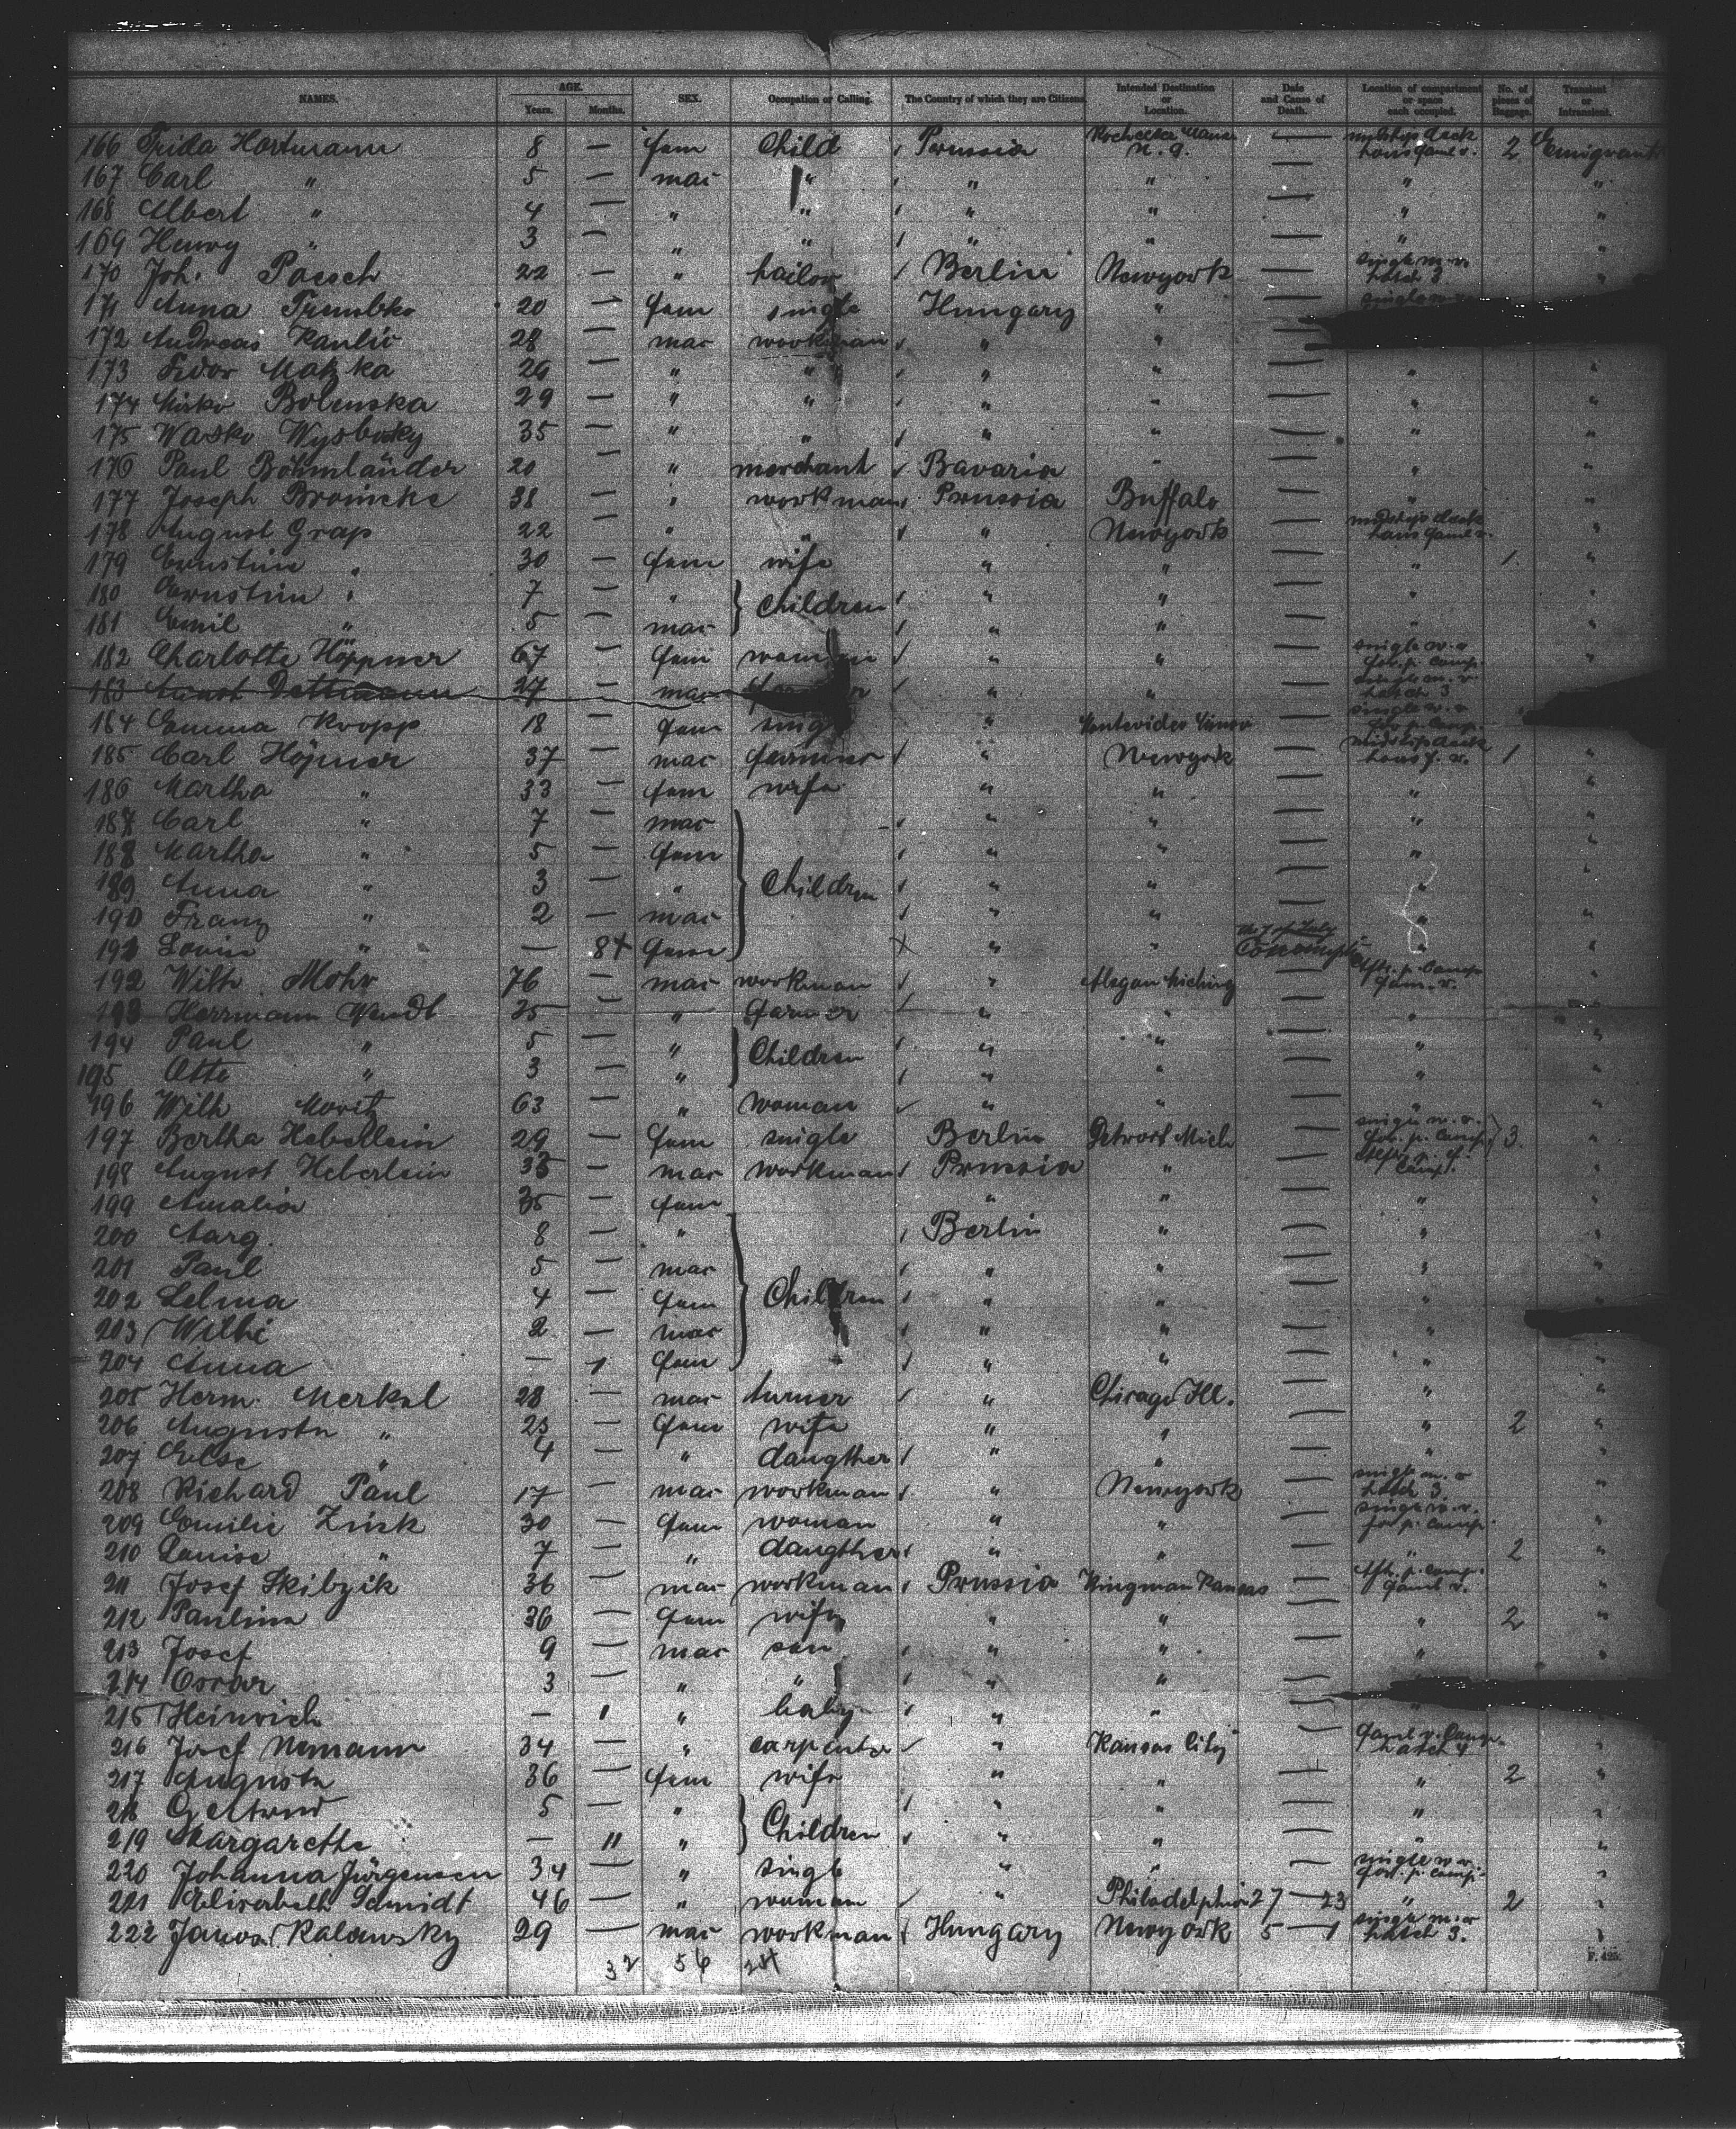 NAMES. AGE. Years. Months. SEX. Occupation or Calling. The Country of which they are Citizens. Intended Destination or Location. Date and Cause of Death. Location of compartment or space each occupied. No. of pieces of Baggage. Transient or Intransient.
166 Frida Hartmann 8 — fem Child Prussia — 2 Emigrant
167 Carl " 5 — mac " " " — " "
168 Albert " 4 — " " " " — " "
169 Henry " 3 — " " " " — " "
170 Joh. Paesch 22 — " tailor Berlin Newyork — single m. r. hatch 3 "
171 Anna 20 — fem single Hungary "
172 Andreas Kaulic 28 — mac workman " "
173 Fedor Matzka 29 — " " " " — " "
174 Mirko Bolenska 29 — " " " " — " "
175 Wasko 35 — " " " " — " "
176 Paul Böhmländer 20 — " merchant Bavaria " — " "
177 Joseph Broincke 38 — " workman Prussia Buffalo — " "
178 August Grap 22 — " " " Newyork — "
179 Ernstine " 30 — fem wife " " — " 1 "
180 Ernstine " 7 — " Children " " — " "
181 Emil " 5 — mac " " — " "
182 Charlotte Höppner 67 — fem woman " " — single w. r. for. p. comp. "
183 Ernst Dettmann 27 — mac " " — single m. r. hatch 3
184 Emma Kropp 18 — fem single " — single w. r.
185 Carl Höpner 37 — mac farmer " Newyork — 1 "
186 Martha " 33 — fem wife " " — " "
187 Carl " 7 — mac " " — " "
188 Martha " 5 — fem " " — " "
189 Anna " 3 — " Children " " — " "
190 Franz " 2 — mac " " — " "
191 Louise " — 8+ fem " " the 7 of July "
192 Wilh. Mohr 76 — mac workman " Alegan Miching — "
193 Herrmann Wendt 35 — " farmer " " — " "
194 Paul " 5 — " Children " " — " "
195 Otto " 3 — " " " — " "
196 Wilh Moritz 63 — " woman " " — " "
197 Bertha Heberlein 29 — fem single Berlin Detroit Mich — single w. r. for. p. comp. 3. "
198 August Heberlein 35 — mac workman Prussia " — "
199 Amalia 35 — fem " " — " "
200 Marg. 8 — " Berlin " — " "
201 Paul 5 — mac " " — " "
202 Selma 4 — fem Children " " — " "
203 Willi 2 — mac " " — "
204 Anna — 1 fem " " — " "
205 Herm. Merkel 28 — mac turner " Chicago Ill. — " "
206 Augusta " 25 — fem wife " " — " 2 "
207 Else " 4 — " daugther " " — " "
208 Richard Paul 17 — mac workman " Newyork — single m. r. hatch 3. "
209 Emilie Zink 30 — fem woman " " — single w. r. for. p. comp. "
210 Louise " 7 — " daugther " " — " 2 "
211 Josef Skibzik 36 — mac workman Prussia Kingman Kansas — aft. p. comp. faml. r. "
212 Paulina 36 — fem wife " " — " 2 "
213 Josef 9 — mac son " " — " "
214 Oscar 3 — " " " " —
215 Heinrich — 1 " baby " " — "
216 Josef Nemann 34 — " carpenter " Kansas City — "
217 Augusta 36 — fem wife " " — " 2 "
218 Gertrud 5 — " Children " " — " "
219 Margarethe — 11 " " " — " "
220 Johanna Jürgensen 34 — " single " " — single w. r. for. p. comp. "
221 Elisabeth Schmidt 46 — " woman " Philadelphia 27 — 23 " 2 "
222 Janos Kalowsky 29 — mac workman Hungary Newyork 5 — 1 single m. r. hatch 3. "
F. 425.
32 56